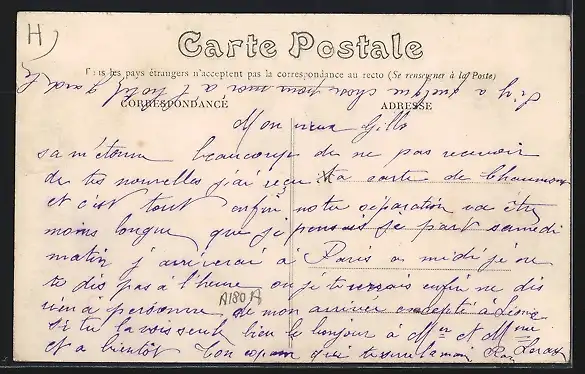 H
Carte Postale
Tous les pays étrangers n'acceptent pas la correspondance au recto (Se renseigner à la Poste)
S'il y a quelque chose pour moi a l'hotel garde le
CORRESPONDANCE ADRESSE
Mon vieux Gills
sa m'étonne beaucoup de ne pas recevoir
de tes nouvelles j'ai reçu ta carte de Chaumon
et c'est tout enfin notre séparation va être
moins longue que je pensais je part samedi
matin j'arriverai à Paris a midi je ne
te dis pas à l'heure ou je te verrais enfin ne dis
rien à personne de mon arrivée excepté à Léonie
A180A
si tu la vois seule bien le bonjour à Mer et Mme
et a bientôt ton copain qui te serre la main